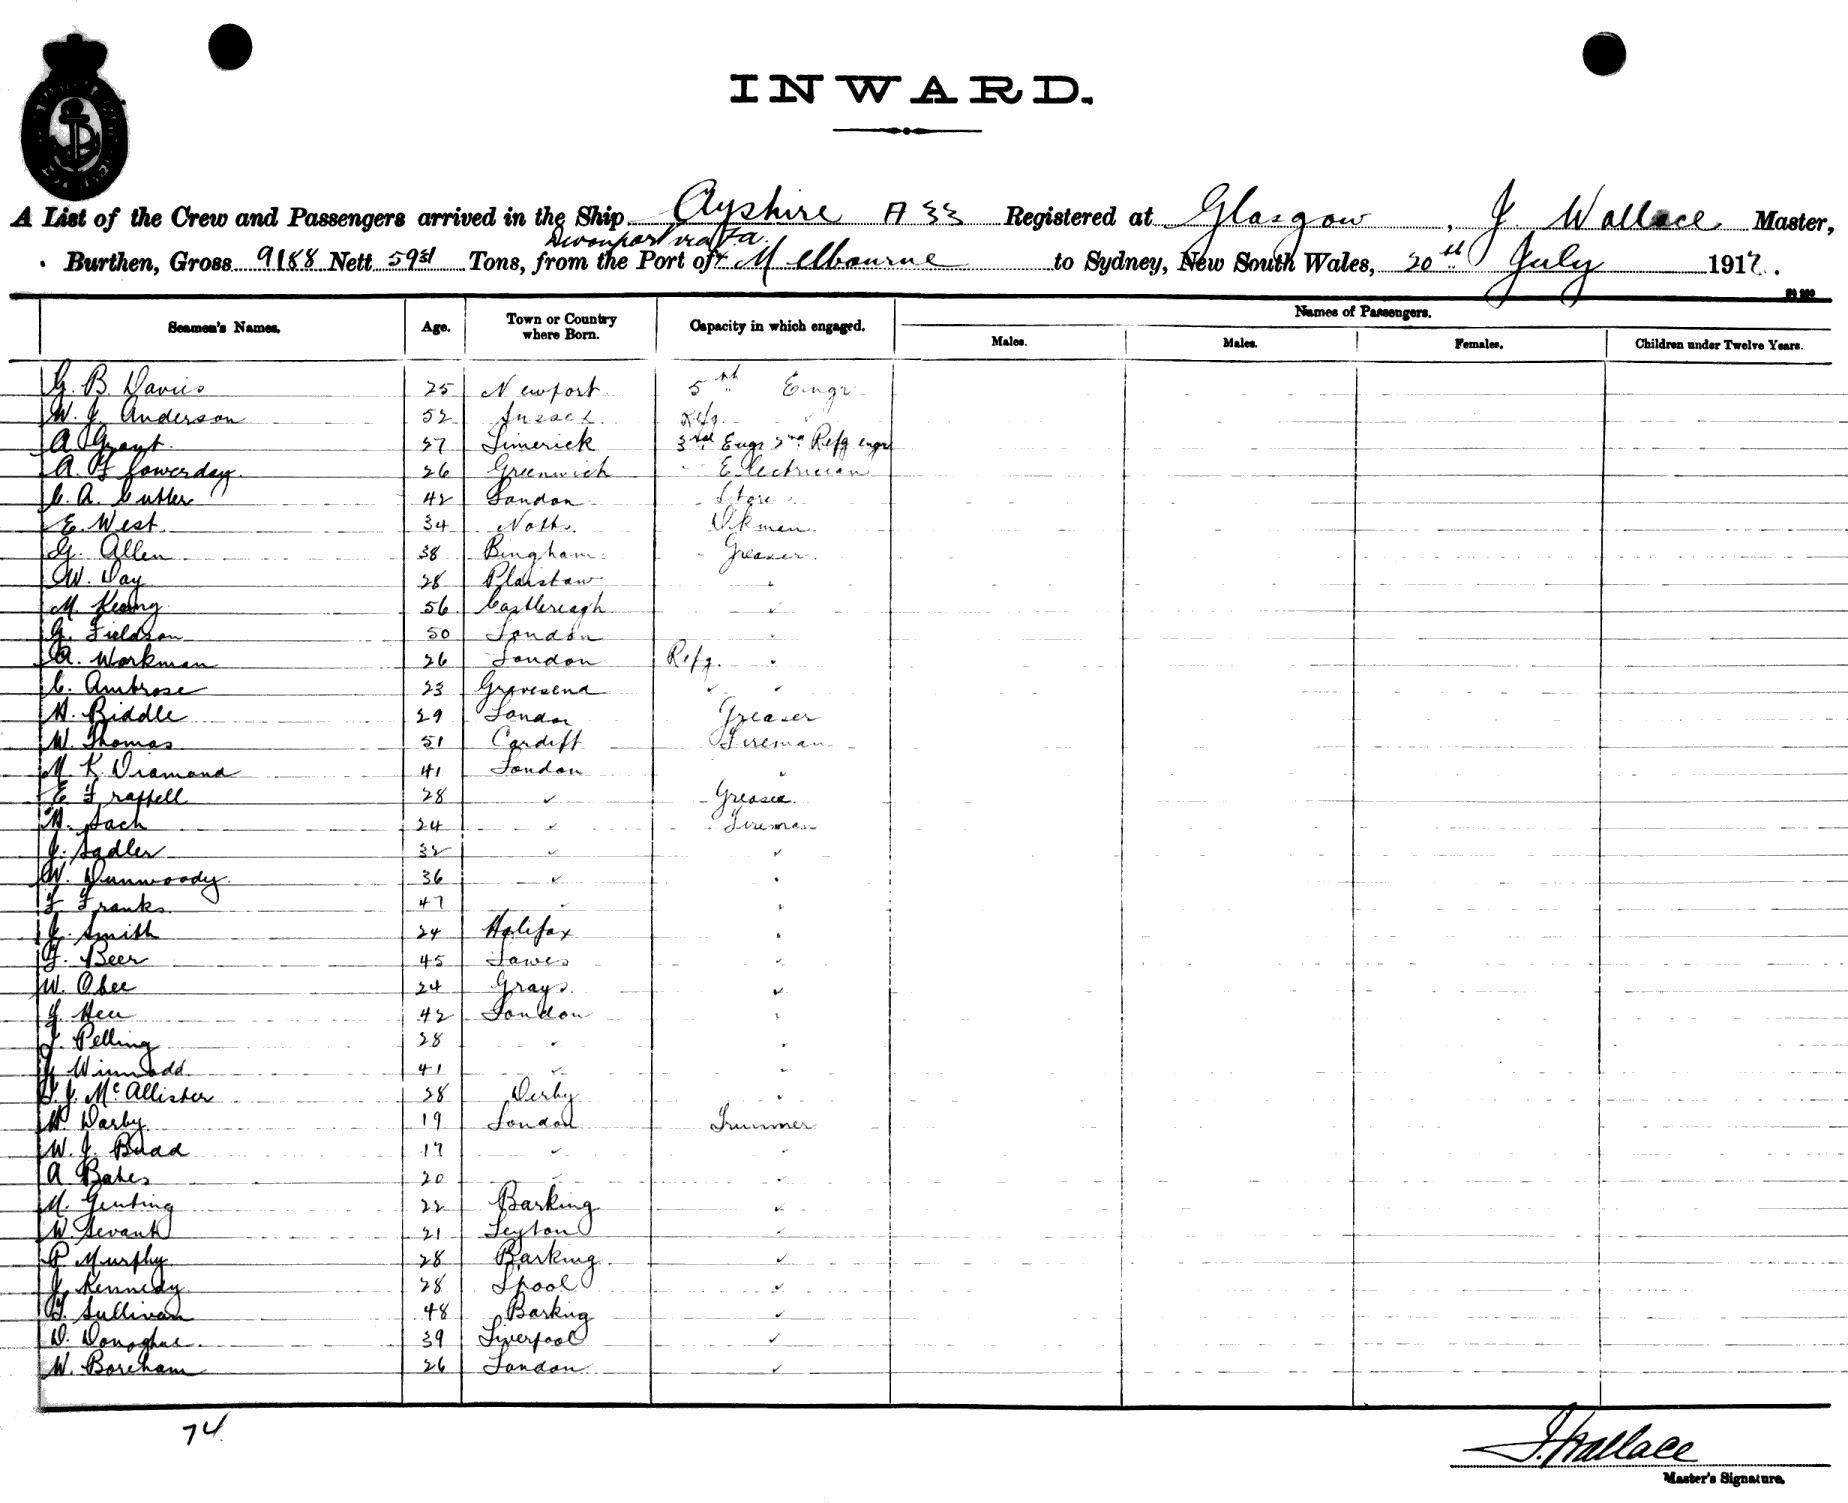 INWARD.
A List of the Crew and Passengers arrived in the Ship Ayshire A 33 Registered at Glasgow, J Wallace Master,
Devonport via
Burthen, Gross 9188 Nett 5931 Tons, from the Port of Melbourne to Sydney, New South Wales, 20th July 1917.
Names of Passengers.
Seamen's Names. Age. Town or Country where Born. Capacity in which engaged. Males. Males. Females. Children under Twelve Years.
G. B. Davies 25 Newport 5th Engr
W. J. Anderson 52 Refg
A Grant 27 Limerick 3rd Engr 2nd Refg engr
A. F Lowerday 26 Greenwich Electrician
C. A. Cutler 42 London Store
E. West 34 Notts. Dkman
G. Allen 38 Bingham Greaser
W. Day 28 Plaistow
M. Keong 56 Castlereagh ✓
G. Fieldson 50 London
A. Workman 26 London Refg.
C. Ambrose 23 Gravesend ✓ ✓
H. Biddle 29 London Greaser
W. Thomas 51 Cardiff Fireman
M. K. Diamond 41 London
E Frapfell 28 ✓ Greaser
H. Sach 24 ✓ Fireman
J. Sadler 32 ✓ ✓
W. Dunwoody 36 ✓
F Franks 47 ✓
J. Smith 24 Halifax
F. Beer 45 Lawes ✓
W. Obee 24 Grays ✓
J 42 London
J. Pelling 28
J Winnodd 41 ✓
T. J. McAllister 28 Derby
H Darby 19 London Trimmer
W. J. Budd 17 ✓ ✓
A Bates 20 ✓ ✓
M. Genting 22 Barking ✓
W Sevant 21 Leyton ✓
P Murphy 28 Barking ✓
J Kennedy 28 Lpool ✓
T. Sullivan 48 Barking ✓
D. Donoghue 39 Liverpool ✓
W. Boreham 26 London ✓
74
J. Wallace
Master's Signature.